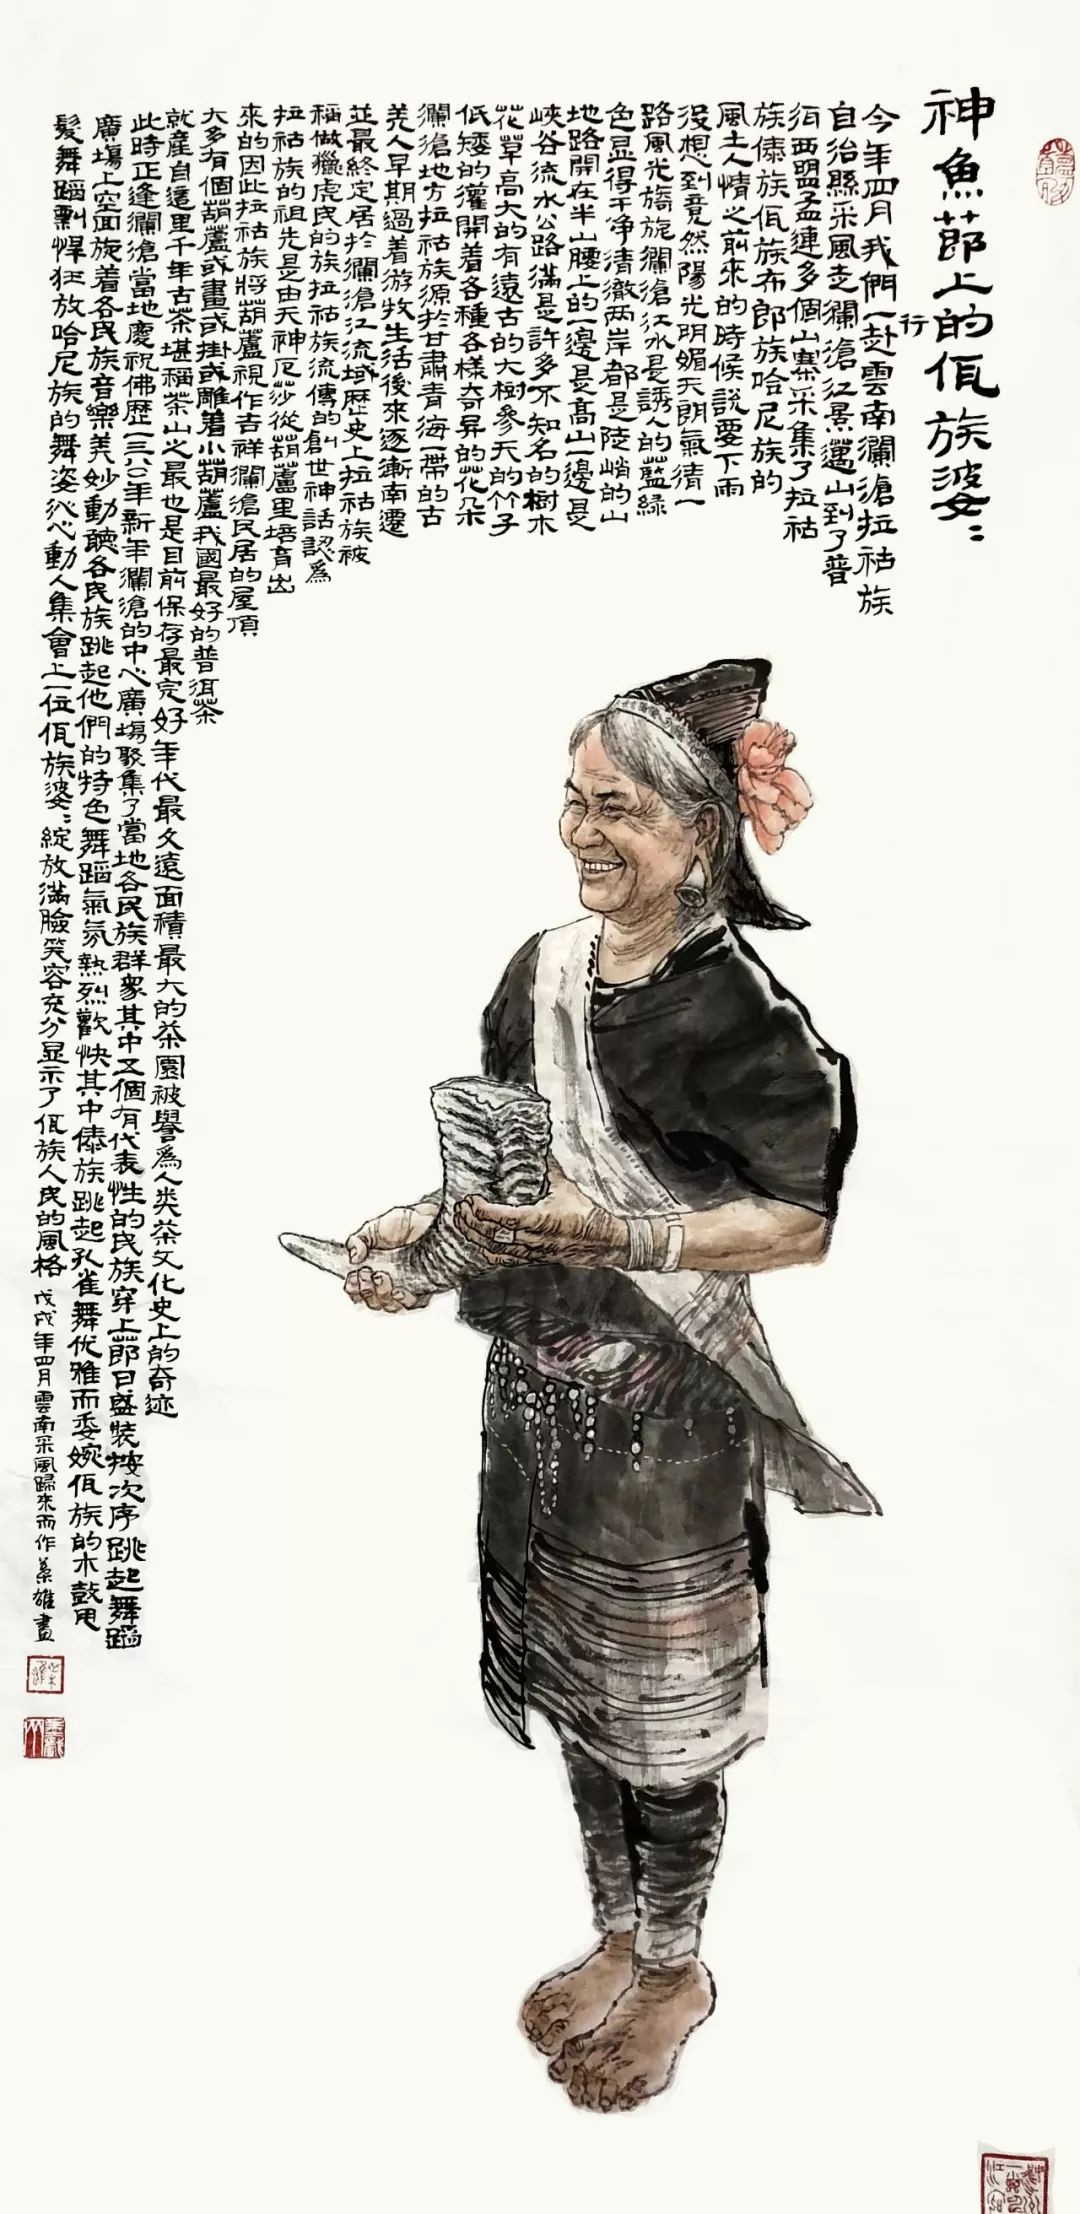 神魚節上的佤族婆〻
今年四月我們一行赴雲南瀾滄拉祜族
自治縣采風走瀾滄江景邁山到了普
洱西盟孟連多個山寨采集了拉祜
族傣族佤族布郎族哈尼族的
風土人情之前來的時候說要下雨
沒想到竟然陽光明媚天朗氣清一
路風光旖旎瀾滄江水是誘人的藍綠
色显得干净清澈两岸都是陡峭的山
地路開在半山腰上的一邊是高山一邊是
峡谷流水公路满是許多不知名的樹木
花草高大的有遠古的大樹參天的竹子
低矮的灌開着各種各樣奇异的花朵
瀾滄地方拉祜族源於甘肅青海一帶的古
羌人早期過着游牧生活後來逐漸南遷
並最終定居於瀾滄江流域歷史上拉祜族被
稱做獵虎民的族拉祜族流傳的創世神話認爲
拉祜族的祖先是由天神厄莎從葫蘆里培育出
來的因此拉祜族將葫蘆視作吉祥瀾滄民居的屋頂
大多有個葫蘆或畫或掛或雕着小葫蘆我國最好的普洱茶
就産自這里千年古茶堪稱茶山之最也是目前保存最完好年代最久遠面積最大的茶園被譽爲人类茶文化史上的奇迹
此時正逢瀾滄當地慶祝佛歷一三八〇年新年瀾滄的中心廣場聚集了當地各民族群衆其中五個有代表性的民族穿上節日盛裝按次序跳起舞蹈
廣場上空面旋着各民族音樂美妙動聽各民族跳起他們的特色舞蹈氣氛熱烈歡快其中傣族跳起孔雀舞优雅而委婉佤族的木鼓甩
髮舞蹈剽悍狂放哈尼族的舞姿沁心動人集會上一位佤族婆〻綻放滿臉笑容充分显示了佤族人民的風格 戊戌年四月雲南采風歸來而作 雄畫